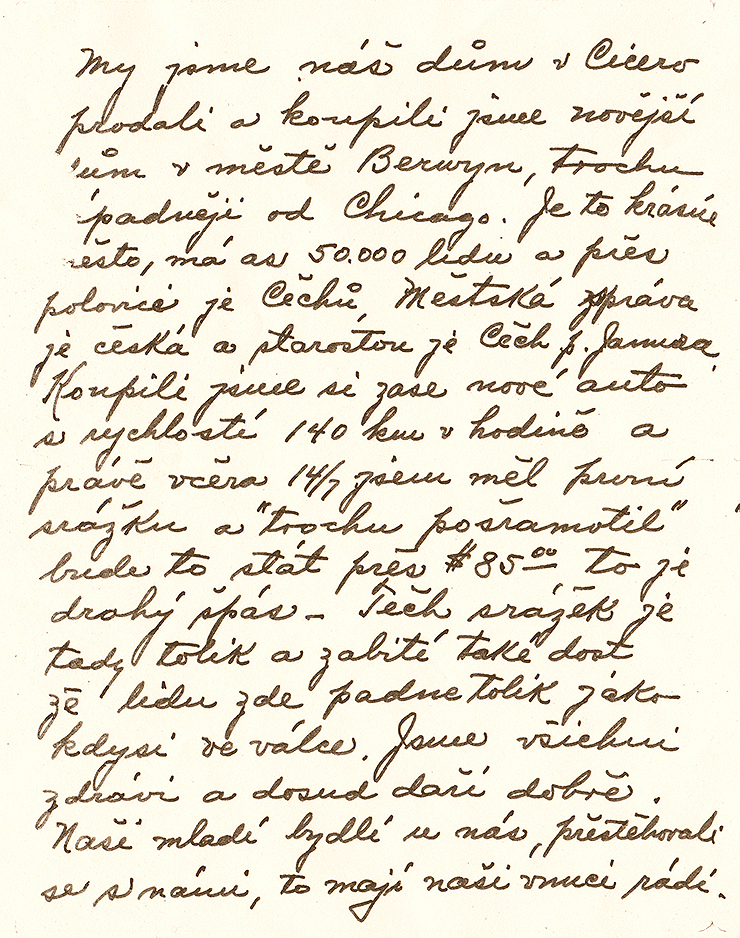 My jsme náš dům v Cicero
prodali a koupili jsme novější
ům v městě Berwyn, trochu
padněji od Chicago. Je to krásné
ěsto, má as 50.000 lidu a přes
polovici je Čěchů, Městská zpráva
je česká a starostou je Čech p. Janura
Koupili jsme si zase nové auto
s rychlostí 140 km v hodině a
právě včera 14/7 jsem měl první
srážku a "trochu pošramotil"
bude to stát přes $85.00 to je
drahý špás – Těch srážek je
tady tolik a zabití také dost
že lidu zde padne tolik jako
kdysi ve válce. Jsme všichni
zdrávi a dosud daří dobře.
Naši mladí bydlí u nás, přestěhovali
se s námi, to mají naši vnuci rádi.